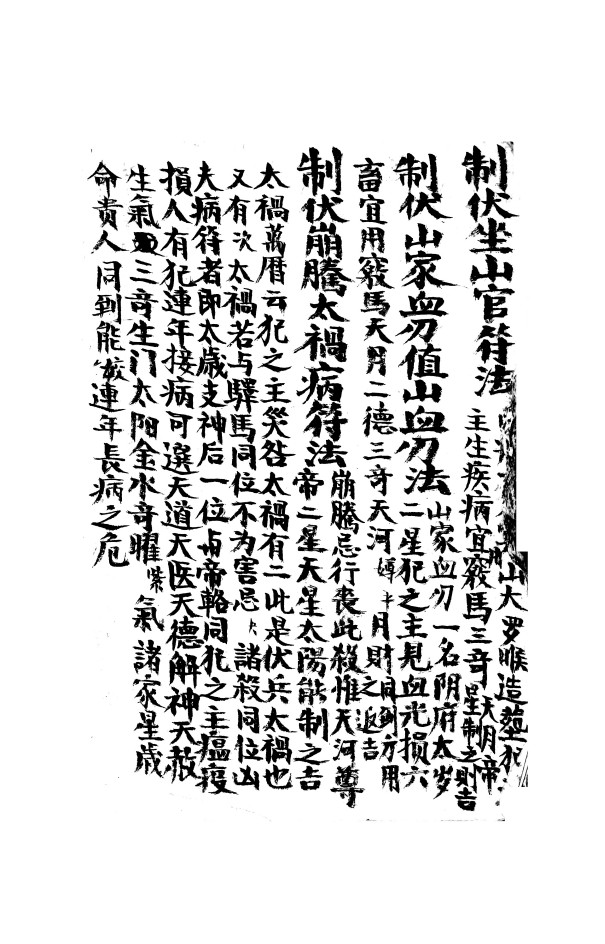 制伏坐山官符法 山大罗睺造塟犯
主生疾病宜竅馬三奇天月帝星制之則吉
制伏山家血刃值山血刃法 山家血刃一名阴府太岁
二星犯之主見血光損六
畜宜用竅馬天月二德三奇天河 月財同到方用之返吉
制伏崩騰太禍病符法 崩騰忌行喪此殺惟天河尊
帝二星天星太陽能制之吉
太禍萬曆云犯之主災咎太禍有二此是伏兵太禍也
又有次太禍若与驛馬同位不为害忌 諸殺同位凶
夫病符者即太歲支神后一位与帝輅同犯之主瘟疫
損人有犯連年接病可選天道天医天德解神天赦
生氣 三奇生门太阳金水奇曜紫氣諸家星歲
命贵人同到能救連年長病之危